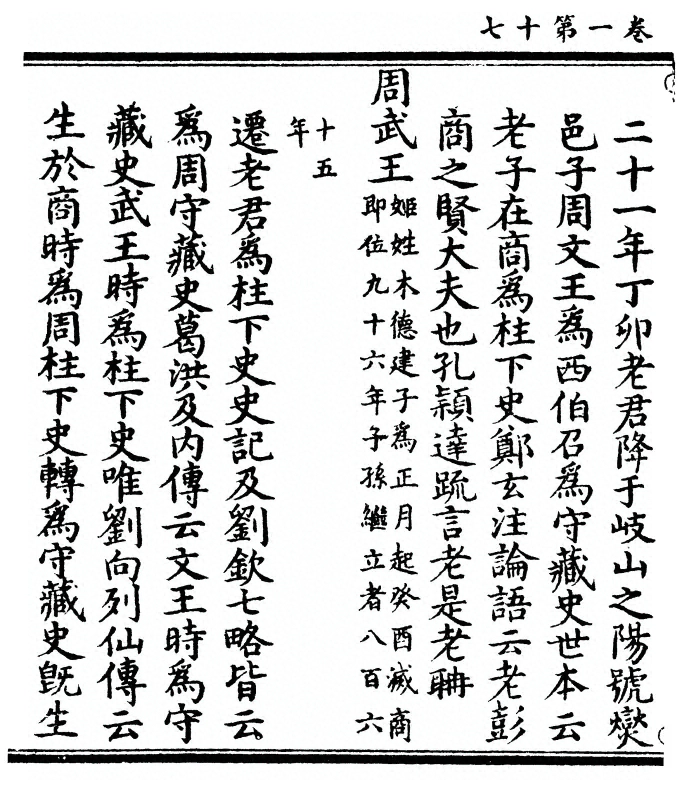 卷一第十七
二十一年丁卯老君降于岐山之陽號爕
邑子周文王爲西伯召爲守藏史世本云
老子在商爲柱下史鄭玄注論語云老彭
商之賢大夫也孔穎達疏言老是老聃
周武王姬姓木德建子爲正月起癸酉滅商
即位九十六年子孫繼立者八百六
十五
年
遷老君爲柱下史史記及劉歆七略皆云
爲周守藏史葛洪及内傳云文王時爲守
藏史武王時爲柱下史唯劉向列仙傳云
生於商時爲周柱下史轉爲守藏史旣生